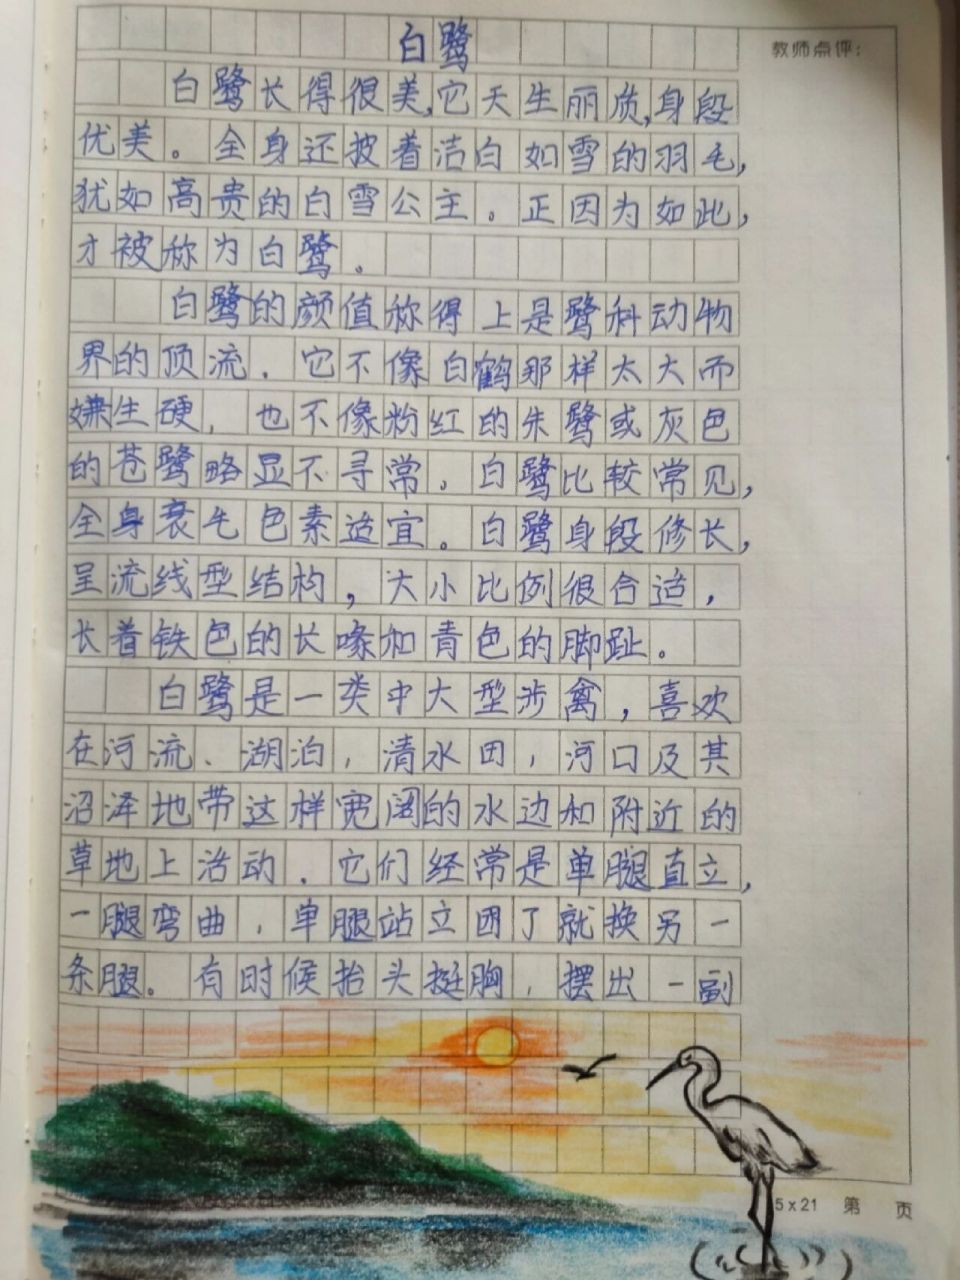 白鹭
教师点评：
白鹭长得很美,它天生丽质,身段
优美。全身还披着洁白如雪的羽毛,
犹如高贵的白雪公主。正因为如此,
才被称为白鹭。
白鹭的颜值称得上是鹭科动物
界的顶流.它不像白鹤那样太大而
嫌生硬,也不像粉红的朱鹭或灰色
的苍鹭略显不寻常.白鹭比较常见,
全身蓑毛色素适宜。白鹭身段修长,
呈流线型结构,大小比例很合适,
长着铁色的长喙和青色的脚趾。
白鹭是一类中大型涉禽,喜欢
在河流、湖泊,清水田,河口及其
沼泽地带这样宽阔的水边和附近的
草地上活动.它们经常是单腿直立,
一腿弯曲,单腿站立困了就换另一
条腿。有时候抬头挺胸,摆出一副
5×21 第 页